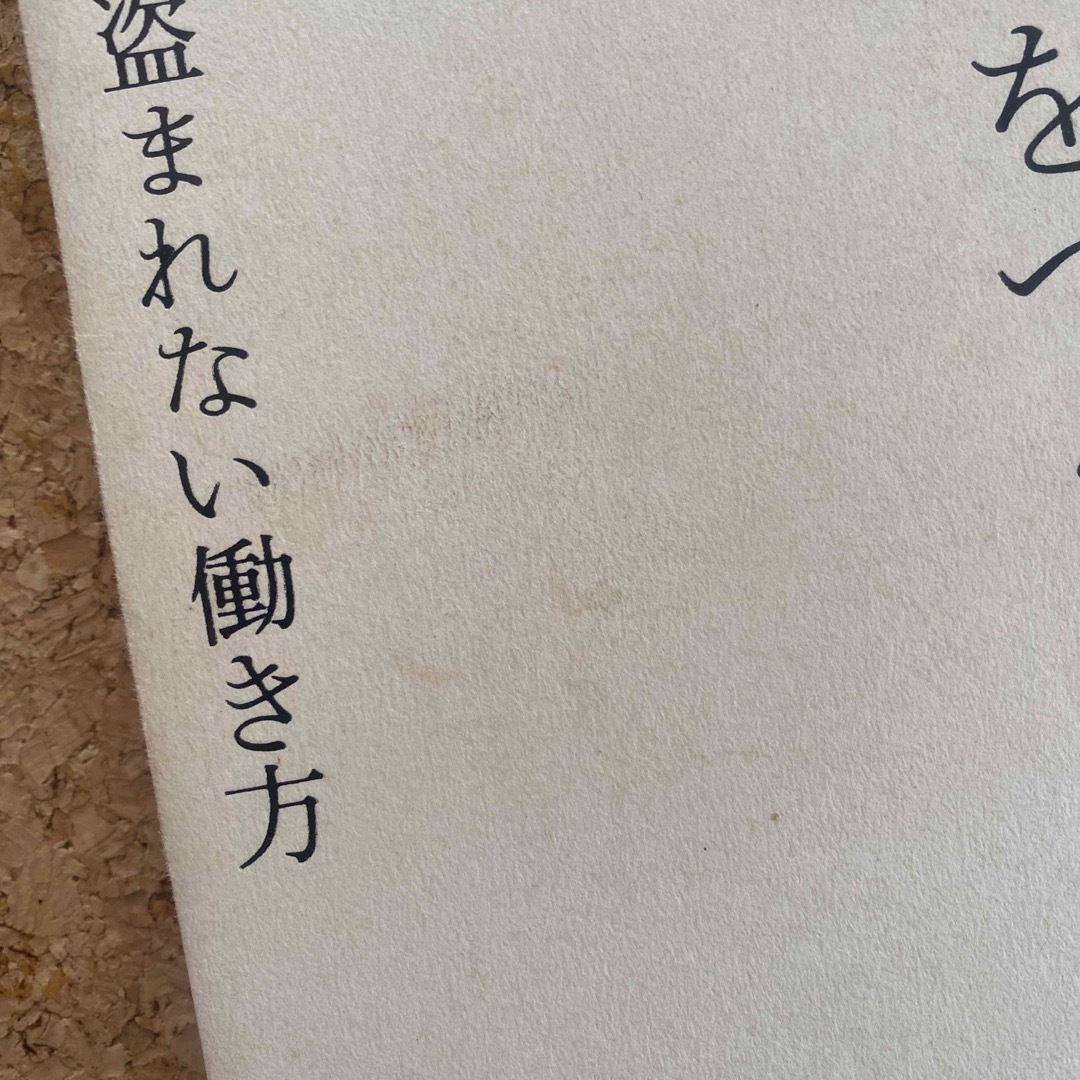 を
盗まれない働き方